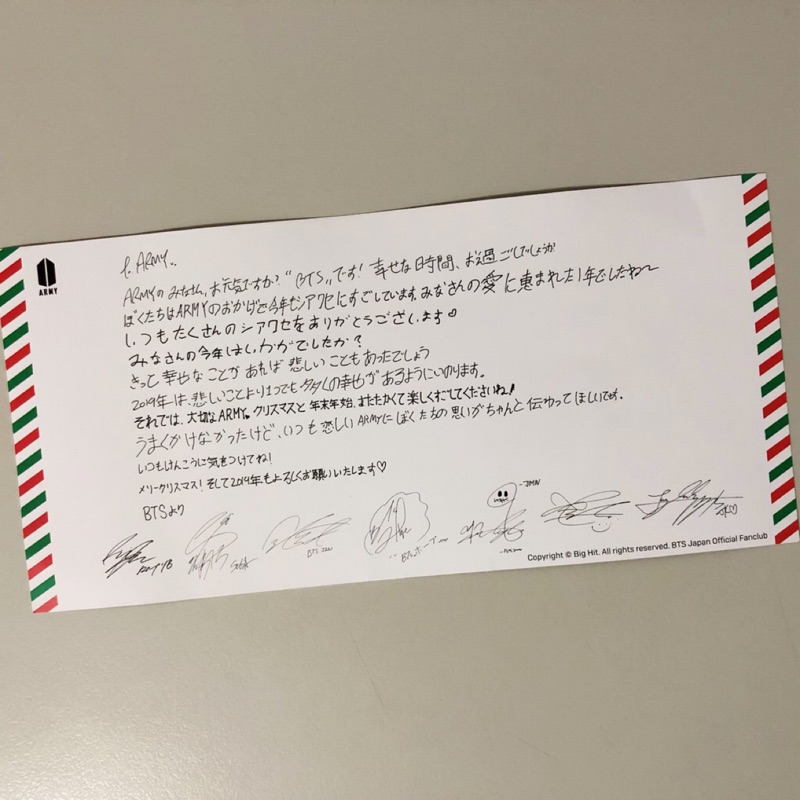 ARMY
ARMYのみなさん、お元気ですか? "BTS"です! 幸せな日時間、お過ごしでしょうか
ぼくたちはARMYのおかげで今年もシアワセにすごしています。みなさんの愛に恵まれた1年でしたね〜
いつもたくさんのシアワセをありがとうございます♡
みなさんの今年はいかがでしたか?
きっと幸せなことがあれば悲しいこともあったでしょう
2019年は、悲しいことより1つでも多くの幸せがあるようにいのります。
それでは、大切なARMY。クリスマスと年末年始、あたたかくて楽しくすごしてくださいね!
うまくかけなかったけど、いつも恋しいARMYにぼくたちの思いがちゃんと伝わってほしいです。
いつもけんこうに気をつけてね!
メリークリスマス! そして2019年もよろしくお願いいたします♡
BTSより
-JIMIN
BTS.
ARMY
Copyright © Big Hit. All rights reserved. BTS Japan Official Fanclub